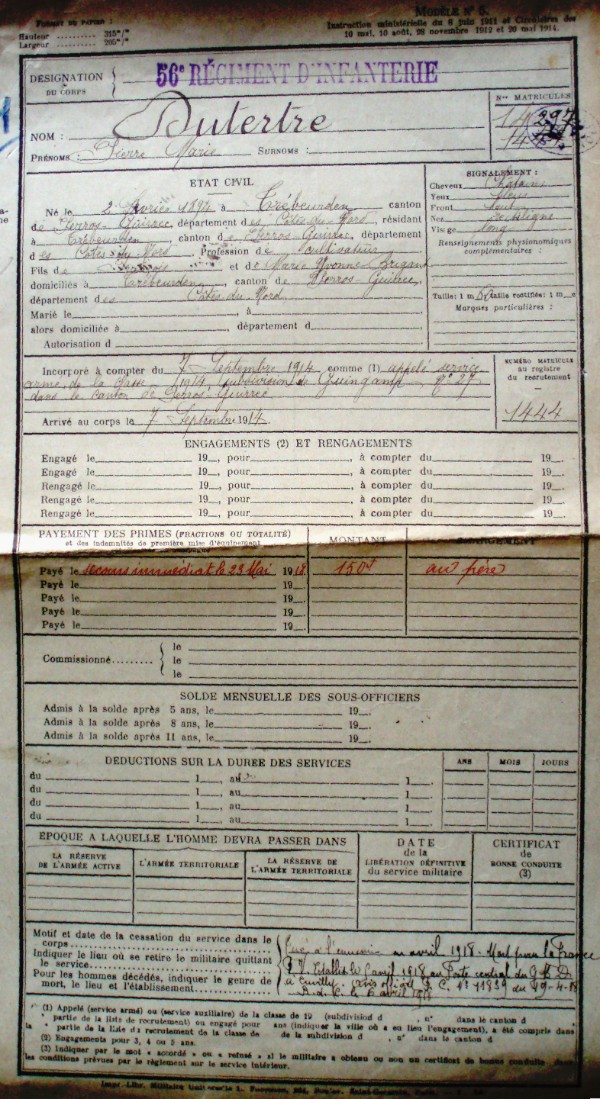 FORMAT DU PAPIER :
Hauteur .......... 315 m/m
Largeur .......... 205 m/m
MODÈLE N° 5.
Instruction ministérielle du 6 juin 1911 et Circulaires des
10 mai, 10 août, 28 novembre 1912 et 20 mai 1914.
DÉSIGNATION
DU CORPS
56e RÉGIMENT D'INFANTERIE
Nos MATRICULES
NOM : Dutertre
PRÉNOMS : Pierre Marie SURNOMS :
ETAT CIVIL
Né le 2 Février 1894 à Trébeurden canton
de Perros-Guirec, département des Côtes du Nord, résidant
à Trébeurden canton de Perros-Guirec, département
des Côtes du Nord, Profession de cultivateur
Fils de et de Marie Yvonne
domiciliés à Trébeurden, canton de Perros-Guirec,
département des Côtes du Nord
Marié le , à
alors domiciliée à , département d
Autorisation d
SIGNALEMENT :
Cheveux
Yeux
Front
Nez rectiligne
Visage long
Renseignements physionomiques
complémentaires :
Taille: 1 m Taille rectifiée: 1 m c
Marques particulières :
Incorporé à compter du 7 Septembre 1914 comme (1) appelé service
armé de la classe 1914, subdivision de Guingamp n° 27
dans le canton de Perros-Guirec
Arrivé au corps le 7 Septembre 1914
NUMÉRO MATRICULE
au registre
du recrutement
1444
ENGAGEMENTS (2) ET RENGAGEMENTS
Engagé le 19 , pour , à compter du 19 .
Engagé le 19 , pour , à compter du 19 .
Rengagé le 19 , pour , à compter du 19 .
Rengagé le 19 , pour , à compter du 19 .
Rengagé le 19 , pour , à compter du 19 .
PAYEMENT DES PRIMES (FRACTIONS OU TOTALITÉ)
et des indemnités de première mise d'équipement
MONTANT
Payé le secours immédiat le 23 Mai 1918 150f au père
Payé le 19
Payé le 19
Payé le 19
Payé le 19
Commissionné.........
le
le
le
SOLDE MENSUELLE DES SOUS-OFFICIERS
Admis à la solde après 5 ans, le 19 .
Admis à la solde après 8 ans, le 19 .
Admis à la solde après 11 ans, le 19 .
DEDUCTIONS SUR LA DUREE DES SERVICES
ANS MOIS JOURS
du 1 , au 1 .
du 1 , au 1 .
du 1 , au 1 .
du 1 , au 1 .
EPOQUE A LAQUELLE L'HOMME DEVRA PASSER DANS
LA RÉSERVE
DE L'ARMÉE ACTIVE
L'ARMÉE TERRITORIALE
LA RÉSERVE DE
L'ARMÉE TERRITORIALE
DATE
de la
LIBÉRATION DÉFINITIVE
du service militaire
CERTIFICAT
de
BONNE CONDUITE
(3)
Motif et date de la cessation du service dans le
corps
Indiquer le lieu où se retire le militaire quittant
le service
Pour les hommes décédés, indiquer le genre de
mort, le lieu et l'établissement
Tué à l'ennemi avril 1918. Mort pour la France
(1) Appelé (service armé) ou (service auxiliaire) de la classe de 19 (subdivision d , n° dans le canton d
partie de la liste de recrutement) ou engagé pour ans (indiquer la ville où a eu lieu l'engagement), a été compris dans
la partie de la liste du recrutement de la classe de de la subdivision d , n° dans le canton d
(2) Engagements pour 3, 4 ou 5 ans.
(3) Indiquer par le mot « accordé » ou « refusé » si le militaire a obtenu ou non un certificat de bonne conduite dans
les conditions prévues par le règlement sur le service intérieur.